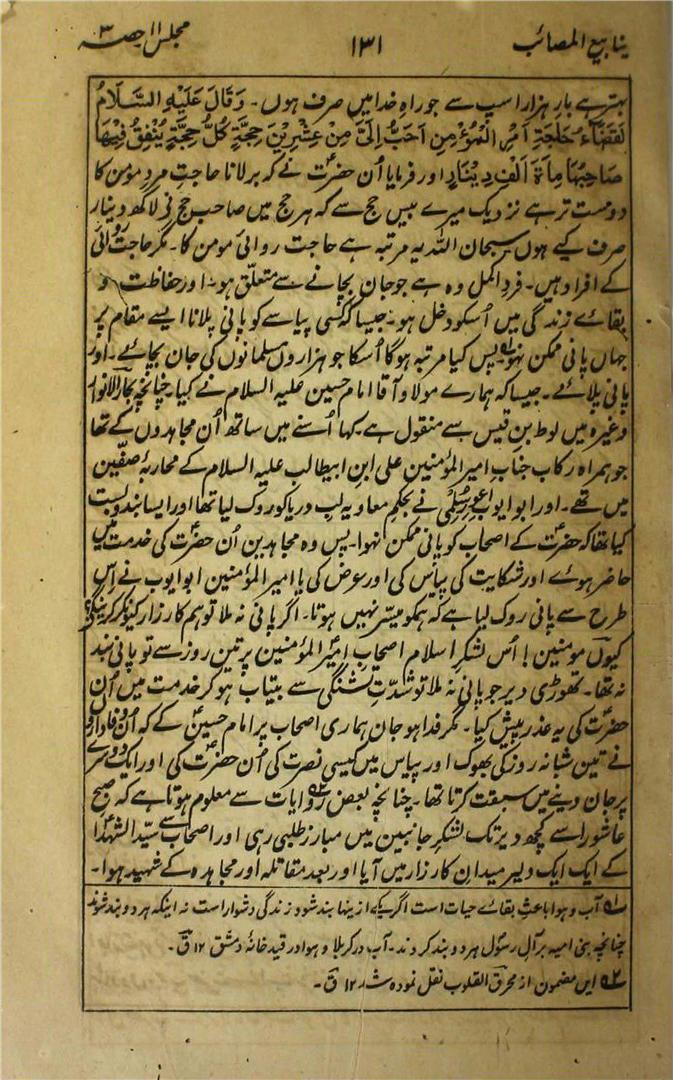 ینابیع المصائب ۱۳۱ مجلس ۱۱ حصہ ۳
بہتر ہے بار ہزار اسپ سے جو راہِ خدا میں صرف ہوں۔ وَقَالَ عَلَیْہِ السَّلَامُ
لَقَضَآءُ حَاجَۃِ امْرِءٍ الْمُؤْمِنِ اَحَبُّ اِلَیَّ مِنْ عِشْرِیْنَ حِجَّۃٍ کُلُّ حِجَّۃٍ یُنْفِقُ فِیْہَا
صَاحِبُہَا مِأَۃَ اَلْفِ دِیْنَارٍ اور فرمایا اُن حضرتؑ نے کہ برلانا حاجتِ مردِ مؤمن کا
دوست تر ہے نزدیک میرے بیس حج سے کہ ہر حج میں صاحبِ حج نے لاکھ دینار
صرف کیے ہوں سبحان اللہ یہ مرتبہ ہے حاجت روائیِ مومن کا۔ مگر حاجت روائی
کے افراد ہیں۔ فردِ اکمل وہ ہے جو جان بچانے سے متعلق ہو۔ اور حفاظت و
بقائے زندگی میں اُسکو دخل ہو۔ جیسا کہ کسی پیاسے کو پانی پلانا ایسے مقام پر
جہاں پانی ممکن نہو۔ پس کیا مرتبہ ہوگا اُسکا جو ہزاروں مسلمانوں کی جان بچائے۔ اور
پانی پلائے۔ جیسا کہ ہمارے مولا و آقا امام حسین علیہ السلام نے کیا۔ چنانچہ بحار الانوار
وغیرہ میں لوط بن قیس سے منقول ہے کہا اُسنے میں ساتھ اُن مجاہدوں کے تھا
جو ہمراہ رکاب جناب امیر المؤمنین علی ابن ابیطالب علیہ السلام کے محاربۂ صفّین
میں تھے۔ اور ابو ایوب اعور سُلمی نے بحکم معاویہ لبِ دریا کو روک لیا تھا اور ایسا بندوبست
کیا تھا کہ حضرتؑ کے اصحاب کو پانی ممکن نہوا۔ پس وہ مجاہدین اُن حضرت کی خدمت میں
حاضر ہوئے اور شکایت کی پیاس کی اور عرض کی یا امیر المؤمنین ابو ایوب نے اِس
طرح سے پانی روک لیا ہے کہ ہمکو میسّر نہیں ہوتا۔ اگر پانی نہ ملا تو ہم کارزار کیونکر کرینگے؟
کیوں مومنین! اُس لشکرِ اسلام اصحابِ امیر المؤمنین پر تین روز سے تو پانی بند
نہ تھا۔ تھوڑی دیر جو پانی نہ ملا تو شدّتِ تشنگی سے بیتاب ہوکر خدمت میں اُن
حضرتؑ کی یہ عذر پیش کیا۔ مگر فدا ہو جان ہماری اصحاب پر امام حسینؑ کے کہ اُن وفاداروں
نے تین شبانہ روز کی بھوک اور پیاس میں کیسی نصرت کی اُن حضرتؑ کی اور ایک دوسرے
پر جان دینے میں سبقت کرتا تھا۔ چنانچہ بعض روایات سے معلوم ہوتا ہے کہ صبح
عاشورا سے کچھ دیر تک لشکرِ جانبین میں مبارز طلبی رہی اور اصحاب سے سیّد الشہدا
کے ایک ایک دلیر میدانِ کارزار میں آیا اور بعد مقاتلہ اور مجاہدہ کے شہید ہوا۔
۱؎ آب و ہوا باعثِ بقائے حیات است اگر یکے از ینہا بند شود زندگی دشوار است نہ اینکہ ہر دو بند شوند
چنانچہ بنی امیہ بر آلِ رسولؐ ہر دو بند کردند۔ آب در کربلا و ہوا در قید خانۂ دمشق ۱۲ ق۔
۲؎ ایں مضمون از محرق القلوب نقل نمودہ شد ۱۲ ق۔